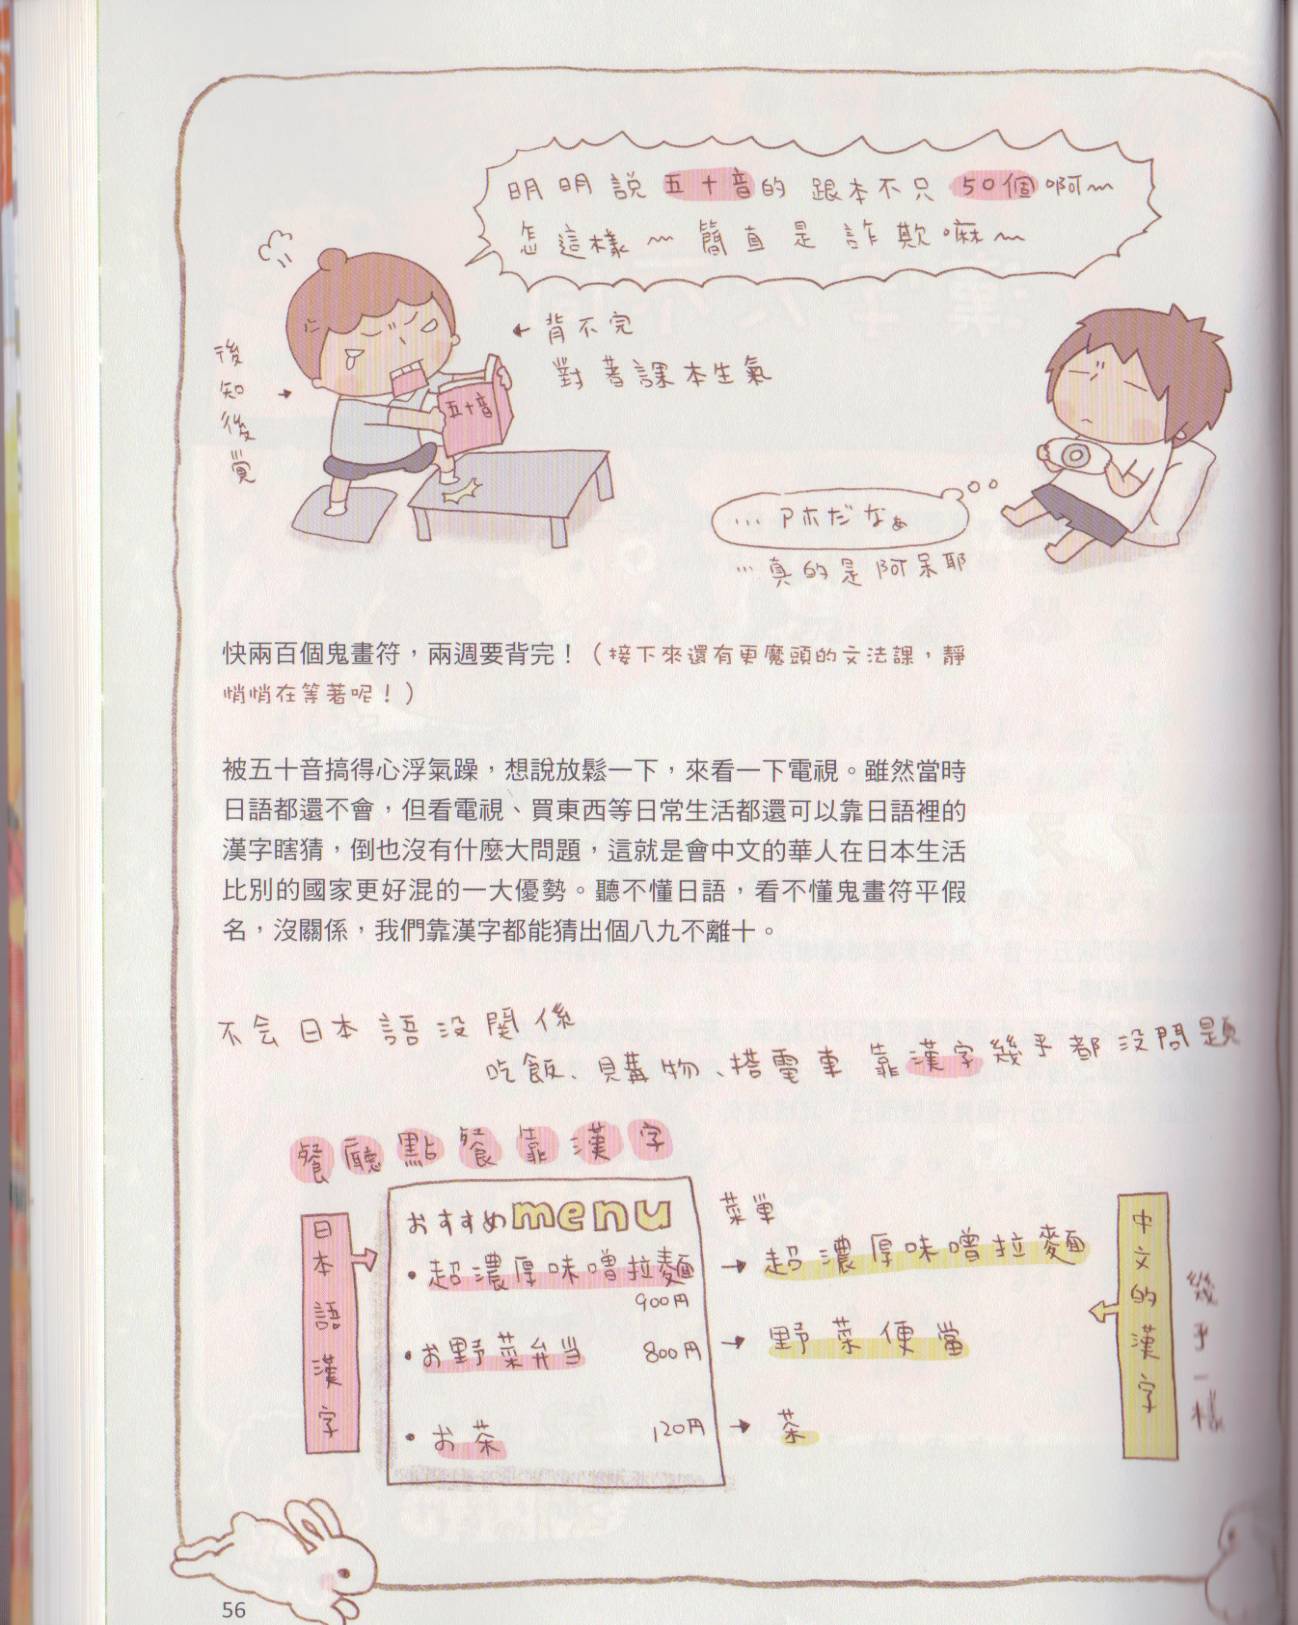 明明說五十音的跟本不只50個啊～
怎這樣～簡直是詐欺嘛～
←背不完
對著課本生氣
後知後覺
五十音
…アホだなぁ
…真的是阿呆耶
快兩百個鬼畫符，兩週要背完！（接下來還有更魔頭的文法課，靜
悄悄在等著呢！）
被五十音搞得心浮氣躁，想說放鬆一下，來看一下電視。雖然當時
日語都還不會，但看電視、買東西等日常生活都還可以靠日語裡的
漢字瞎猜，倒也沒有什麼大問題，這就是會中文的華人在日本生活
比別的國家更好混的一大優勢。聽不懂日語，看不懂鬼畫符平假
名，沒關係，我們靠漢字都能猜出個八九不離十。
不会日本語没関係
吃飯、購物、搭電車靠漢字幾乎都没問題
餐廳點餐靠漢字
日本語漢字
おすすめmenu
・超濃厚味噌拉麵
900円
・お野菜弁当 800円
・お茶 120円
菜單
→超濃厚味噌拉麵
→野菜便當
→茶
中文的漢字
幾乎一樣
56